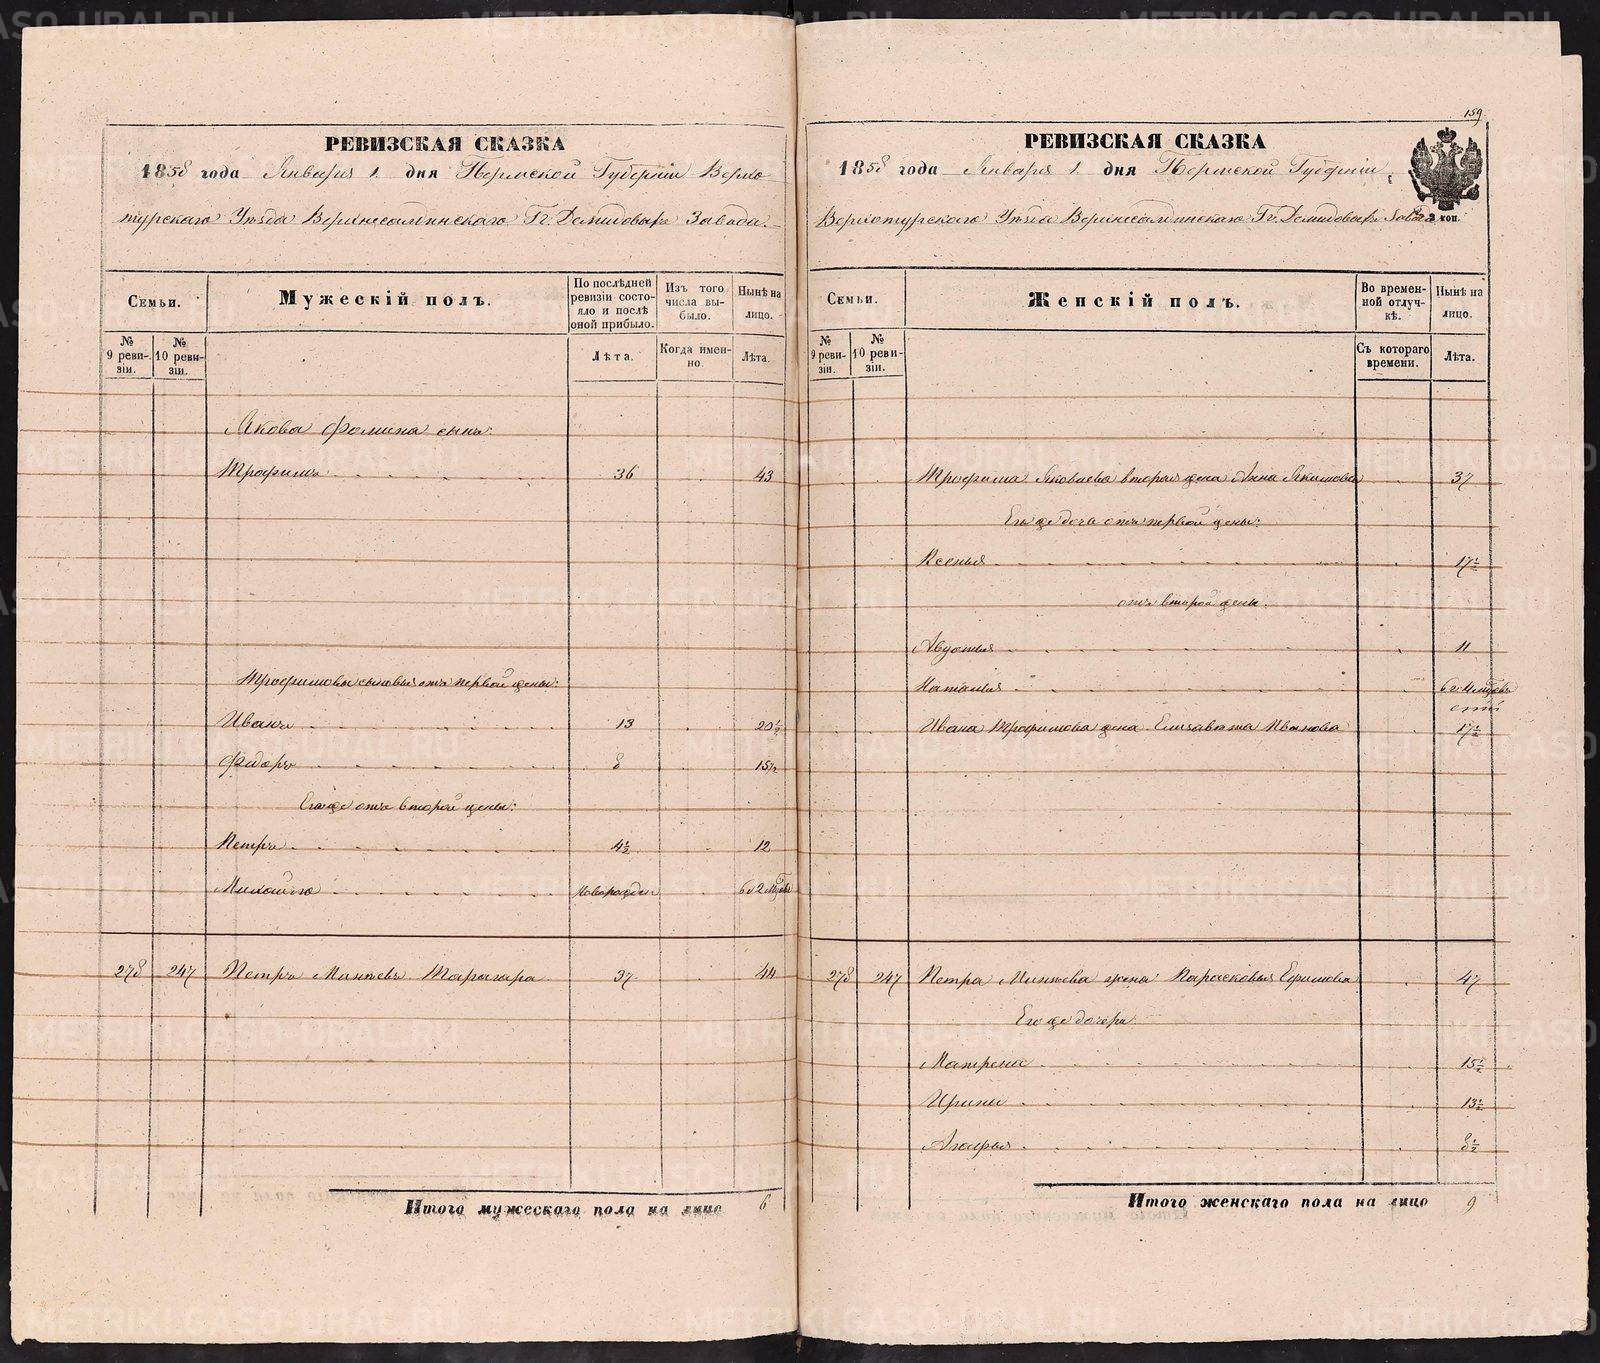 159
РЕВИЗСКАЯ СКАЗКА
1858 года Января 1 дня Пермской Губерніи Верхо-
турскаго Уѣзда Верхнесалдинскаго Гг. Демидовыхъ Завода.
Семьи.
Мужескій полъ.
По послѣдней ревизіи состояло и послѣ оной прибыло.
Изъ того числа выбыло.
Нынѣ на лицо.
№ 9 ревизіи.
№ 10 ревизіи.
Лѣта.
Когда именно.
Лѣта.
Якова Фомина сынъ:
Трофимъ 36 43
Трофимовы сыновья отъ первой жены:
Иванъ 13 20½
Фидоръ 8 15½
Его же отъ второй жены:
Петръ 4½ 12
новорожден
278 247 Петръ 37 44
Итого мужескаго пола на лицо 6
РЕВИЗСКАЯ СКАЗКА
1858 года Января 1 дня Пермской Губерніи,
Верхотурскаго Уѣзда Верхнесалдинскаго Гг. Демидовыхъ Завода
коп.
Семьи.
Женскій полъ.
Во временной отлучкѣ.
Нынѣ на лицо.
№ 9 ревизіи.
№ 10 ревизіи.
Съ котораго времени.
Лѣта.
Трофима Яковлева вторая жена Анна Якимова 37
Его же дочь отъ первой жены:
Ксенья 17½
отъ второй жены.
Авдотья 11
Наталья
Ивана Трофимова жена Елизавета Иванова 17½
278 247 Петра жена Парасковья Ефимова 47
Его же дочери
Матрена 15½
Ирина 13½
Агафья 8½
Итого женскаго пола на лицо 9
METRIKI.GASO-URAL.RU